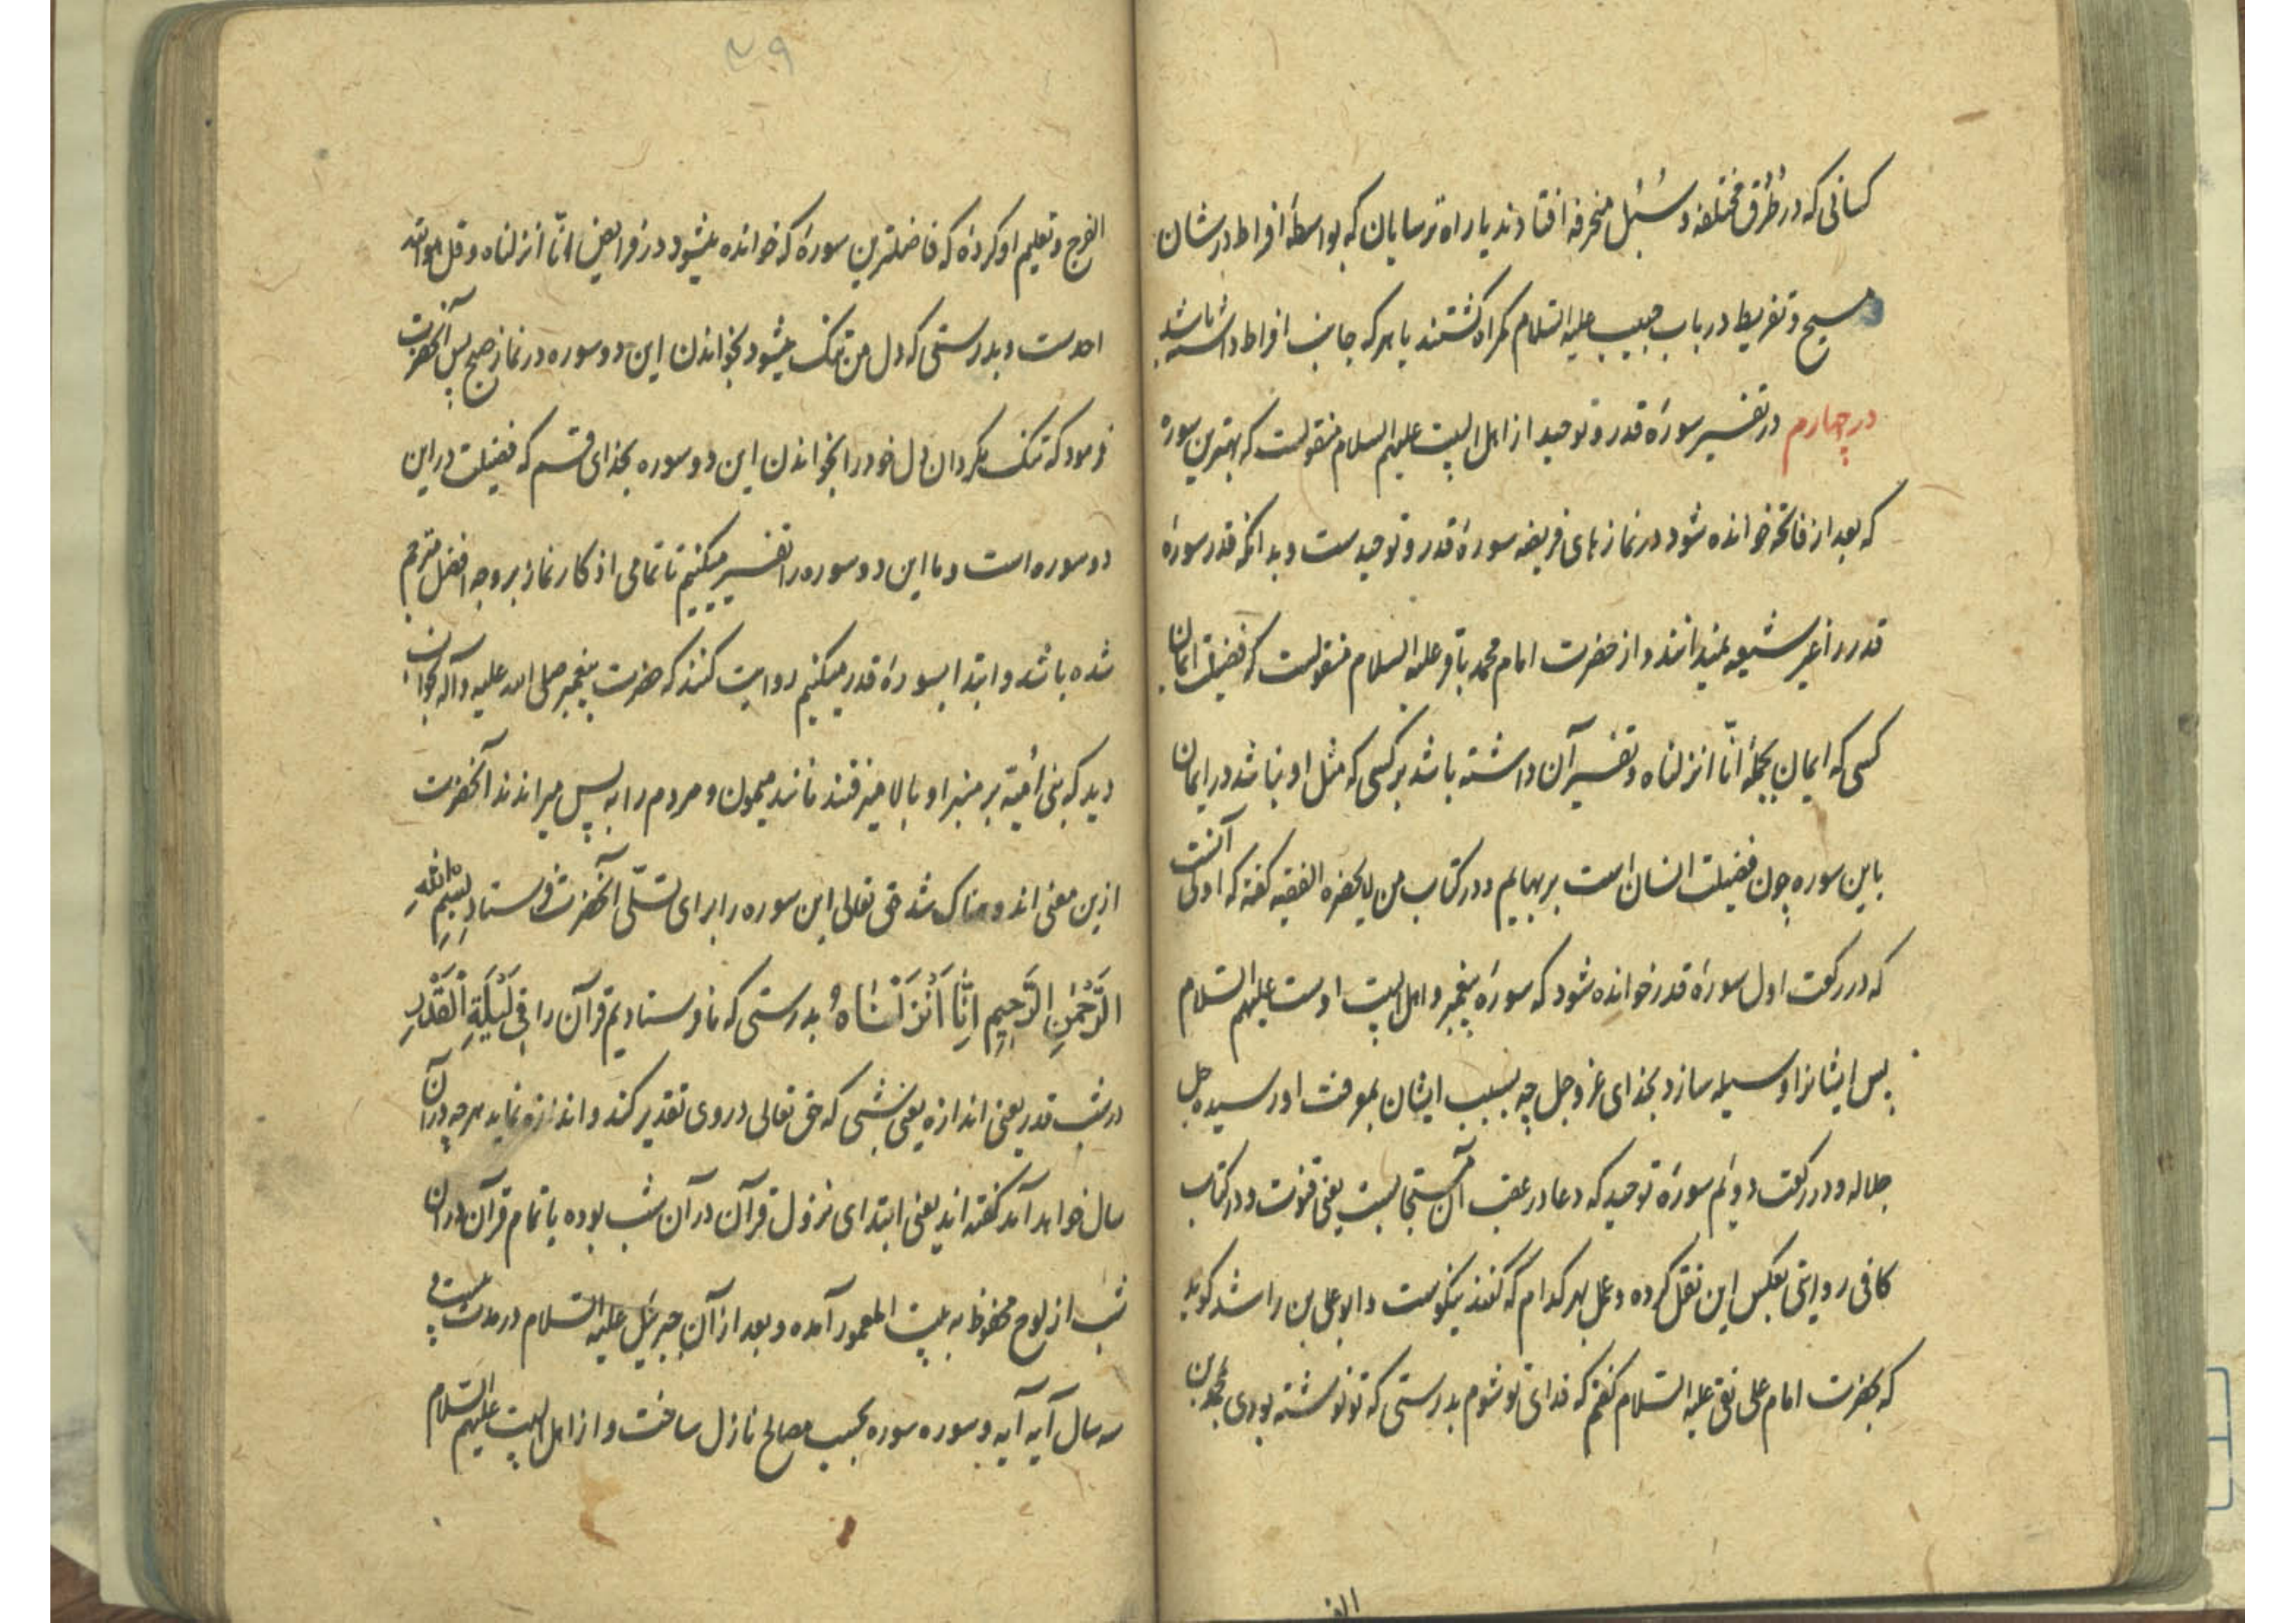 کسانی که در طُرُق مختلفه و سُبُل منحرفه افتادند یا راه ترسایان که بواسطهٔ افراط در شان
مسیح و تفریط در باب حبیب علیه السلام گمراه گشتند یا هر که جانب افراط داشته باشد
در چهارم در تفسیر سورهٔ قدر و توحید از اهل البیت علیهم السلام منقولست که بهترین سوره
که بعد از فاتحه خوانده شود در نماز های فریضه سورهٔ قدر و توحیدست و بدانکه قدر سورهٔ
قدر را غیر شیعه نمیدانند و از حضرت امام محمد باقر علیه السلام منقولست که فضیلت ایمان
کسی که ایمان بجملهٔ انّا انزلناه و تفسیر آن داشته باشد بر کسی که مثل او نباشد در ایمان
باین سوره چون فضیلت انسان است بر بهایم و در کتاب من لایحضره الفقیه گفته که اولی آنست
که در رکعت اول سورهٔ قدر خوانده شود که سورهٔ پیغمبر و اهل البیت اوست علیهم السلام
پس ایشانرا وسیله سازد بخدای عز و جل چه بسبب ایشان بمعرفت او رسیده جل
جلاله و در رکعت دویم سورهٔ توحید که دعا در عقب آن مستجابست یعنی قنوت و در کتاب
کافی روایتی بعکس این نقل کرده و عمل بهر کدام که کنند نیکوست و ابو علی بن راشد گوید
که بحضرت امام علی نقی علیه السلام گفتم که فدای تو شوم بدرستی که تو نوشته بودی بمحمد بن
الفرج
۴۹
الفرج و تعلیم او کردهٔ که فاضلترین سورهٔ که خوانده میشود در فرایض انّا انزلناه و قل هو الله
احدست و بدرستی که دل من تنگ میشود بخواندن این دو سوره در نماز صبح پس آنحضرت
فرمود که تنگ مگردان دل خود را بخواندن این دو سوره بخدای قسم که فضیلت در این
دو سوره است و ما این دو سوره را تفسیر میکنیم تا تمامی اذکار نماز بر وجه افضل مترجم
شده باشد و ابتدا بسورهٔ قدر میکنیم روایت کنند که حضرت پیغمبر صلی الله علیه و آله بخواب
دید که بنی اُمیّه بر منبر او بالا میرفتند مانند میمون و مردم را به پس میراندند آنحضرت
ازین معنی اندوهناک شد حق تعالی این سوره را برای تسلّی آنحضرت فرستاد بِسْمِ اللهِ
الرَّحْمٰنِ الرَّحِیمِ اِنَّا اَنْزَلْنَاهُ بدرستی که ما فرستادیم قرآن را فِی لَیْلَةِ الْقَدْرِ
در شب قدر یعنی اندازه یعنی شبی که حق تعالی در وی تقدیر کند و اندازه نماید هر چه در آن
سال خواهد آمد گفته اند یعنی ابتدای نزول قرآن در آن شب بوده یا تمام قرآن در آن
شب از لوح محفوظ به بیت المعمور آمده و بعد از آن جبرئیل علیه السلام در مدت بیست و
سه سال آیه آیه و سوره سوره بحسب مصالح نازل ساخت و از اهل البیت علیهم السلام